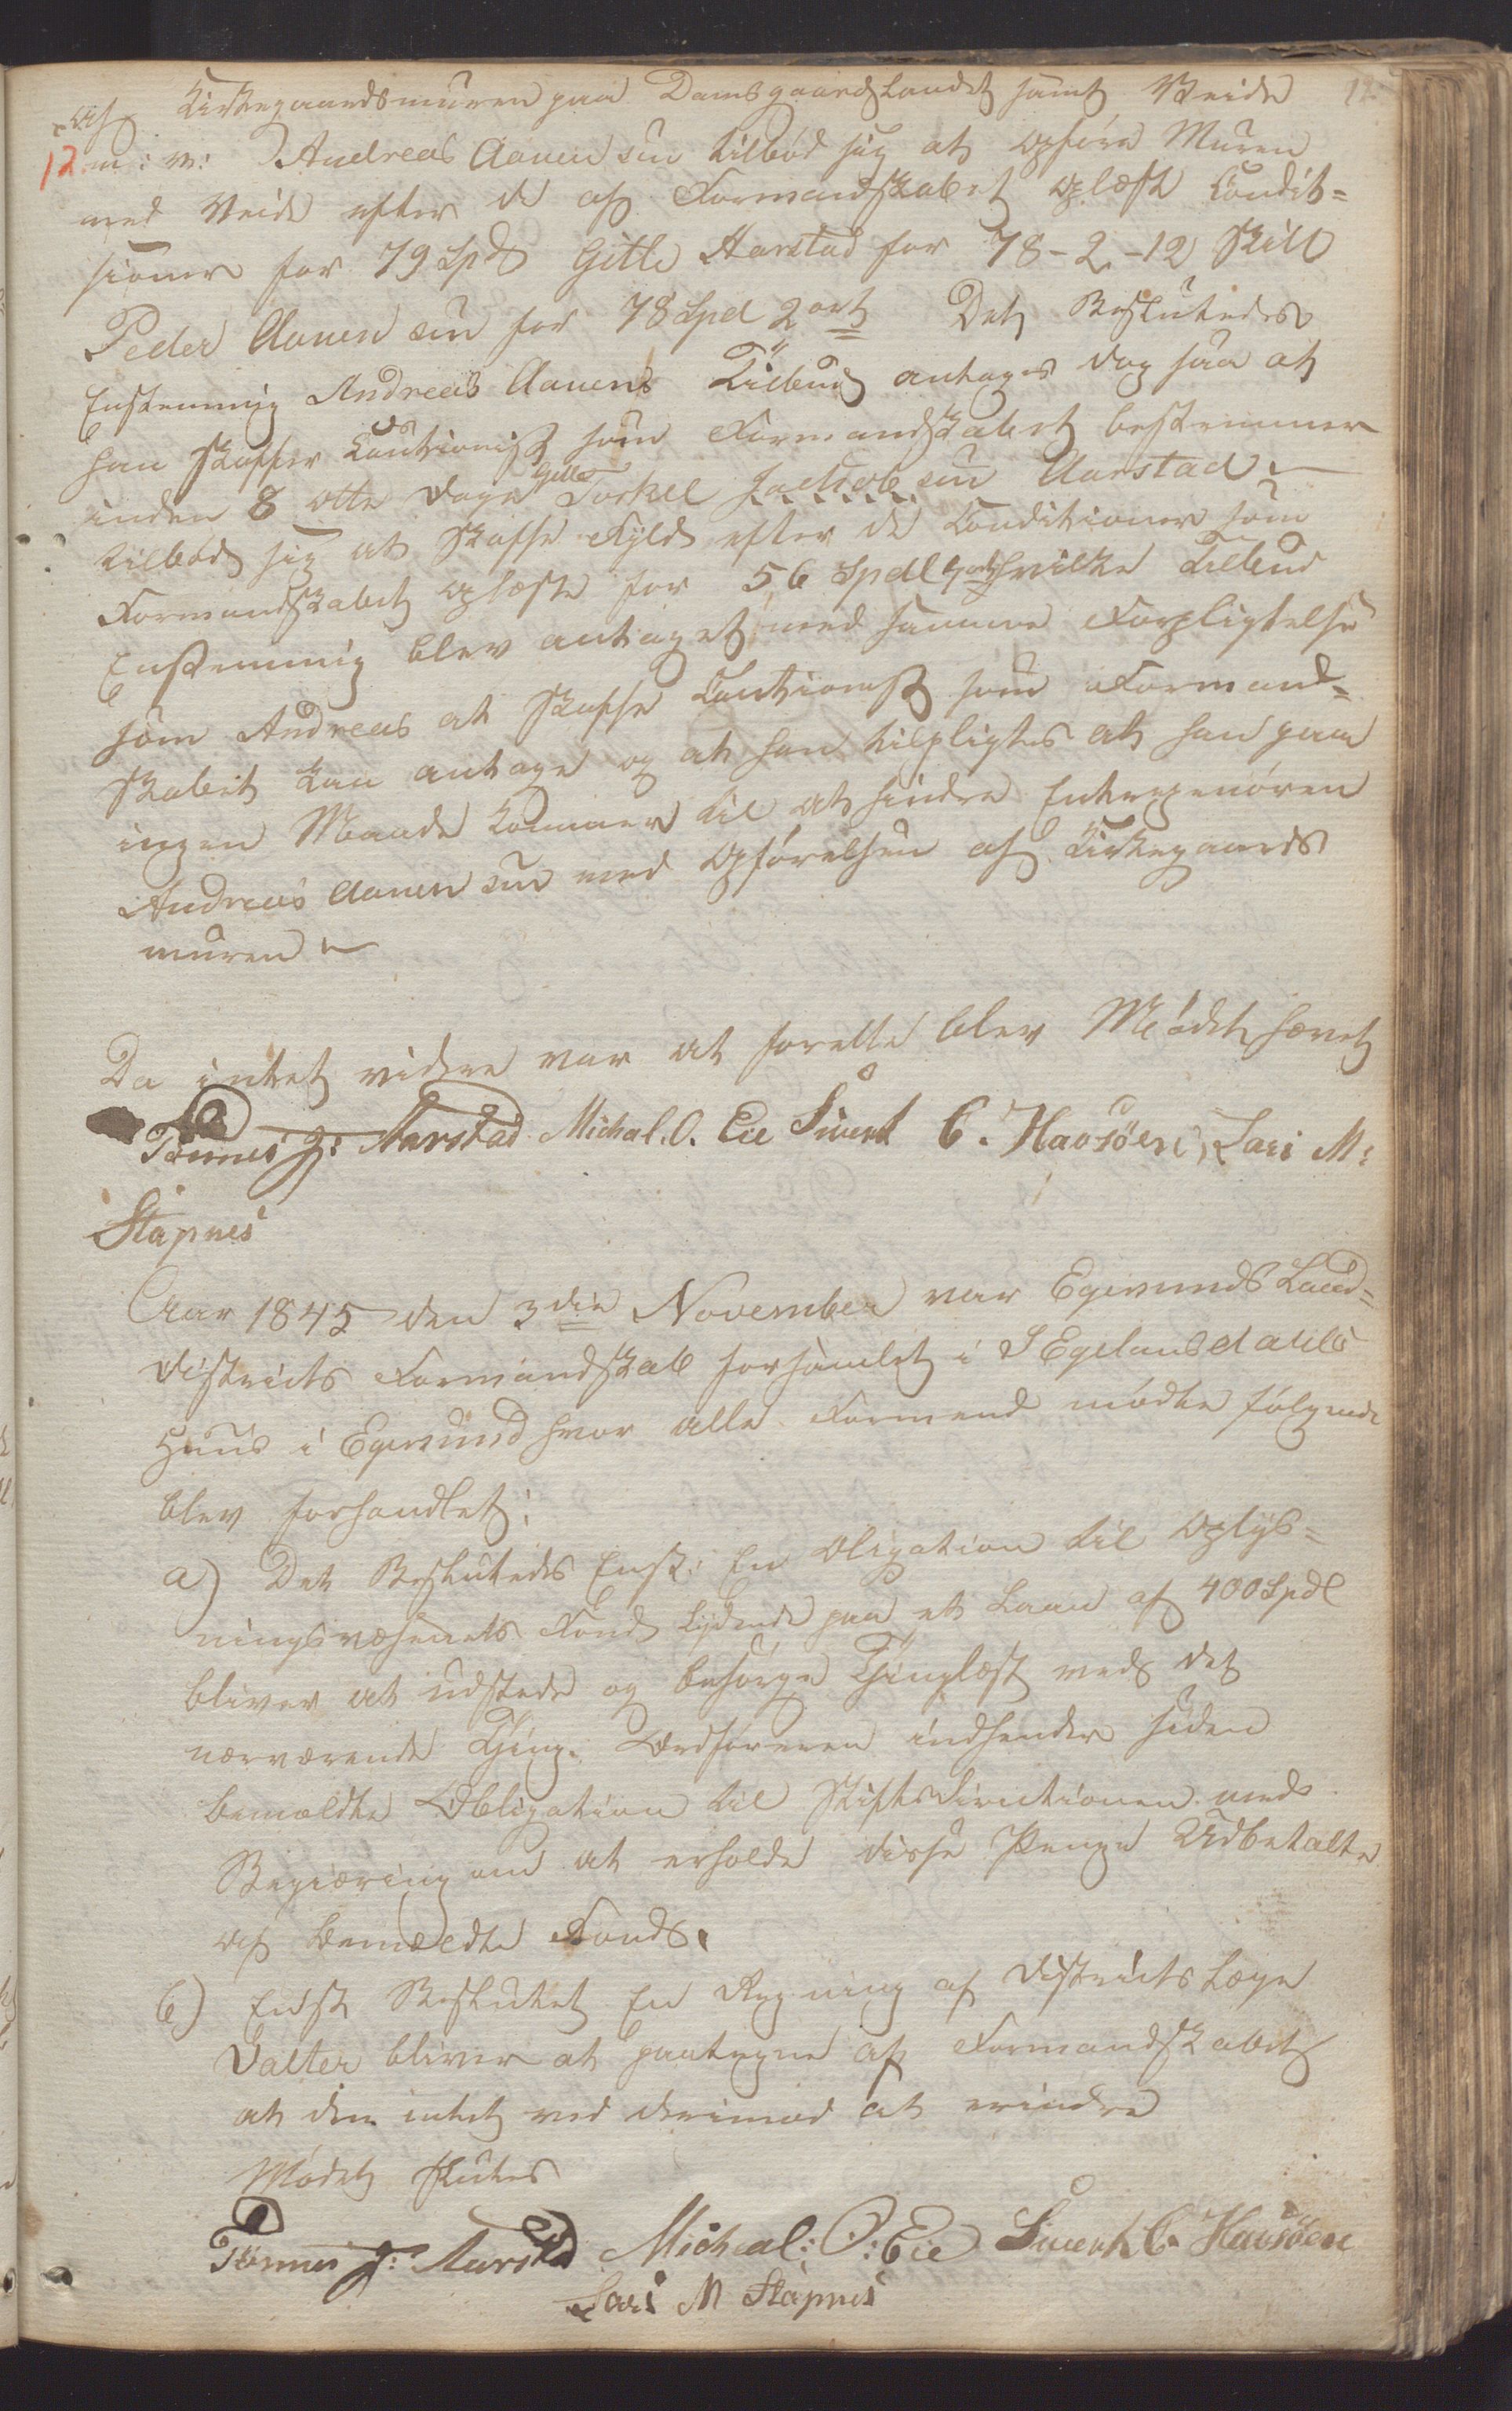 12
af Kirkegaardsmuren paa Damsgaard Landet samt Veide
12 m: v: Andreas Aanensen tilbød sig at opføre Muren
med Veide efter de af Formandskabet oplæste Condit=
sioner for 79 Spd Gitle Aarstad for 78-2-12 Skill
Peder Aanensen for 78 Spd 2 ort Det Beslutedes
Enstemmig Andreas Aanens Tilbud antages dog saa at
han skaffer Cautionist som Formandskabet bestemmer
inden 8 otte Dage Gitle Torkel Jachobsen Aarstad
tilbød sig at skaffe Fyld efter de Conditioner som
Formandskabet oplæste for 56 Spdl ort hvilke Tilbud
Enstemmig blev antaget med samme Forpligtelse
som Andreas at skaffe Cautionist som Formand=
skabet kan antage og at han tilpligtes at han paa
ingen Maade kommer til at hindre Entreprenøren
Andreas Aanensen med Opførelsen af Kirkegaards
muren
Da intet videre var at forette blev Mødet hævet
Tønnes J: Aarstad Michal. O. Eie Sivert C. Havsøen, Lars M:
Stapnes
Aar 1845 den 3die November var Egersunds Land=
districts Formandskab forsamlet i S Egelandsdahls
Huus i Egersund hvor alle Formænd mødte følgende
blev forhandlet:
a) Det Beslutedes Enst: En Obligation til Oplys=
ningsvæsenets Fond lydende paa et Laan af 400 Spdl
bliver at udstede og besørge Thinglæst ved det
nærværende Thing. Ordføreren indsender siden
bemældte Obligation til Stiftsdirectionen med
Begiæring om at erholde disse Penge Udbetalte
af bemældte Fonds.
b) Enst Besluttet En Regning af Districts Læge
Valter bliver at paategne af Formandskabet
at den intet ved derimod at erindre
Mødet slutes
Tønnes J: Aarstad Michael: O: Eie Sivert C. Havsøen
Lars M Stapnes